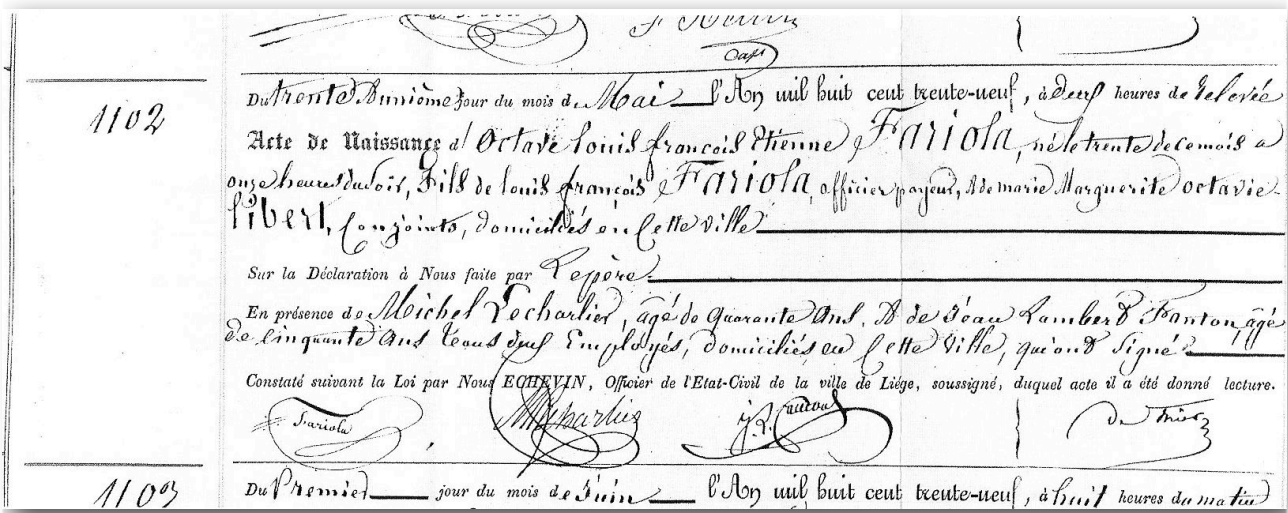 1102
Du trente Unnième jour du mois de Mai l'An mil huit cent trente-neuf, à deux heures de relevée
Acte de Naissance d' Octave louis françois Etienne Fariola, né le trente de ce mois a
onze heures du soir, fils de louis françois Fariola, officier payeur, & de marie Marguerite octavie
libert, Conjoints, domiciliés en Cette ville
Sur la Déclaration à Nous faite par Le père.
En présence de Michel Lecharlier, âgé de quarante Ans, & de Jean Lambert Fanton, âgé
de Cinquante Ans tous deux Employés, domiciliés en Cette Ville, qui ont Signé
Constaté suivant la Loi par Nous ECHEVIN, Officier de l'Etat-Civil de la ville de Liége, soussigné, duquel acte il a été donné lecture.
Fariola
1103
Du Premier jour du mois de Juin l'An mil huit cent trente-neuf, à huit heures du matin